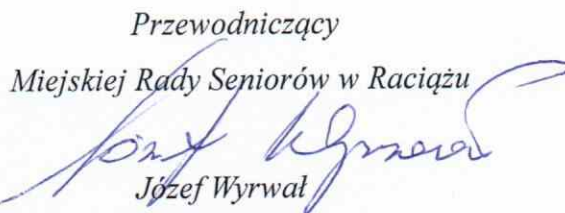 Przewodniczący
Miejskiej Rady Seniorów w Raciążu
Józef Wyrwał